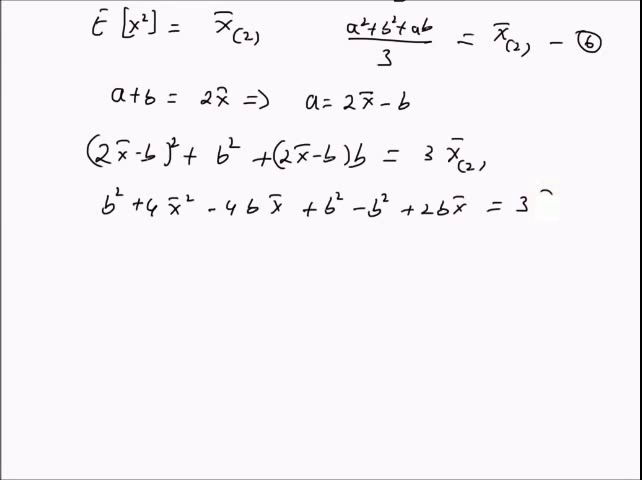 E [x²] = x̄₍₂₎ (a²+b²+ab)/3 = x̄₍₂₎ - ⑥
a+b = 2x̄ => a = 2x̄ - b
(2x̄-b)² + b² + (2x̄-b)b = 3 x̄₍₂₎
b² + 4x̄² - 4bx̄ + b² - b² + 2bx̄ = 3